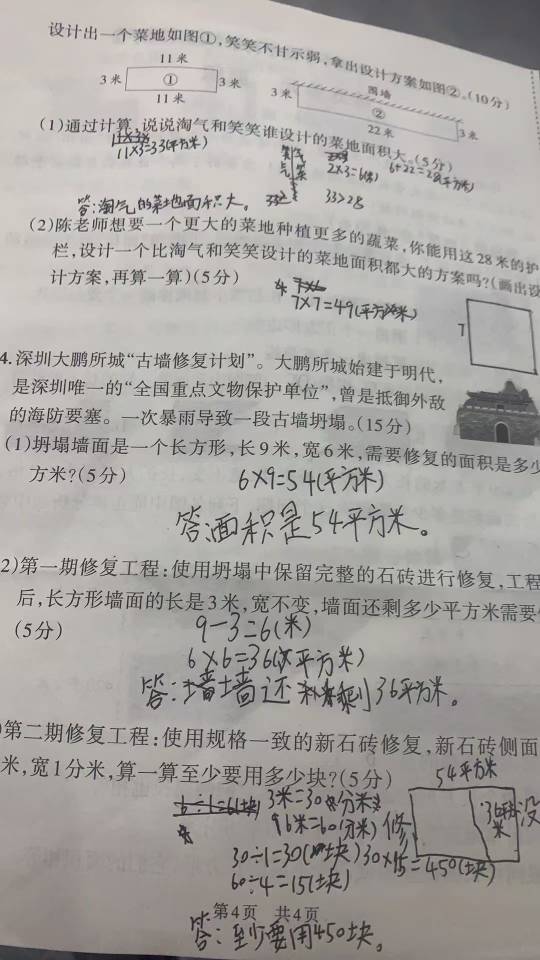 设计出一个菜地如图①,笑笑不甘示弱,拿出设计方案如图②。(10分)
11米
3米 ① 3米
11米
围墙
3米 ② 3米
22米
(1)通过计算,说说淘气和笑笑谁设计的菜地面积大。(5分)
11×3=33(平方米)
2×3=6(米)
6+22=28(平方米)
33>28
答:淘气的菜地面积大。
(2)陈老师想要一个更大的菜地种植更多的蔬菜,你能用这28米的护
栏,设计一个比淘气和笑笑设计的菜地面积都大的方案吗?(画出设
计方案,再算一算)(5分)
7×7=49(平方米)
7
4.深圳大鹏所城“古墙修复计划”。大鹏所城始建于明代,
是深圳唯一的“全国重点文物保护单位”,曾是抵御外敌
的海防要塞。一次暴雨导致一段古墙坍塌。(15分)
(1)坍塌墙面是一个长方形,长9米,宽6米,需要修复的面积是多少
方米?(5分)
6×9=54(平方米)
答:面积是54平方米。
2)第一期修复工程:使用坍塌中保留完整的石砖进行修复,工程
后,长方形墙面的长是3米,宽不变,墙面还剩多少平方米需要
(5分)
9-3=6(米)
6×6=36(平方米)
答:墙墙还剩36平方米。
)第二期修复工程:使用规格一致的新石砖修复,新石砖侧面
米,宽1分米,算一算至少要用多少块?(5分)
54平方米
6÷1=6(块)
3米=30分米
6米=60(分米)
修
没
30÷1=30(块)
30×15=450(块)
60÷4=15(块)
第4页 共4页
答:至少要用450块。